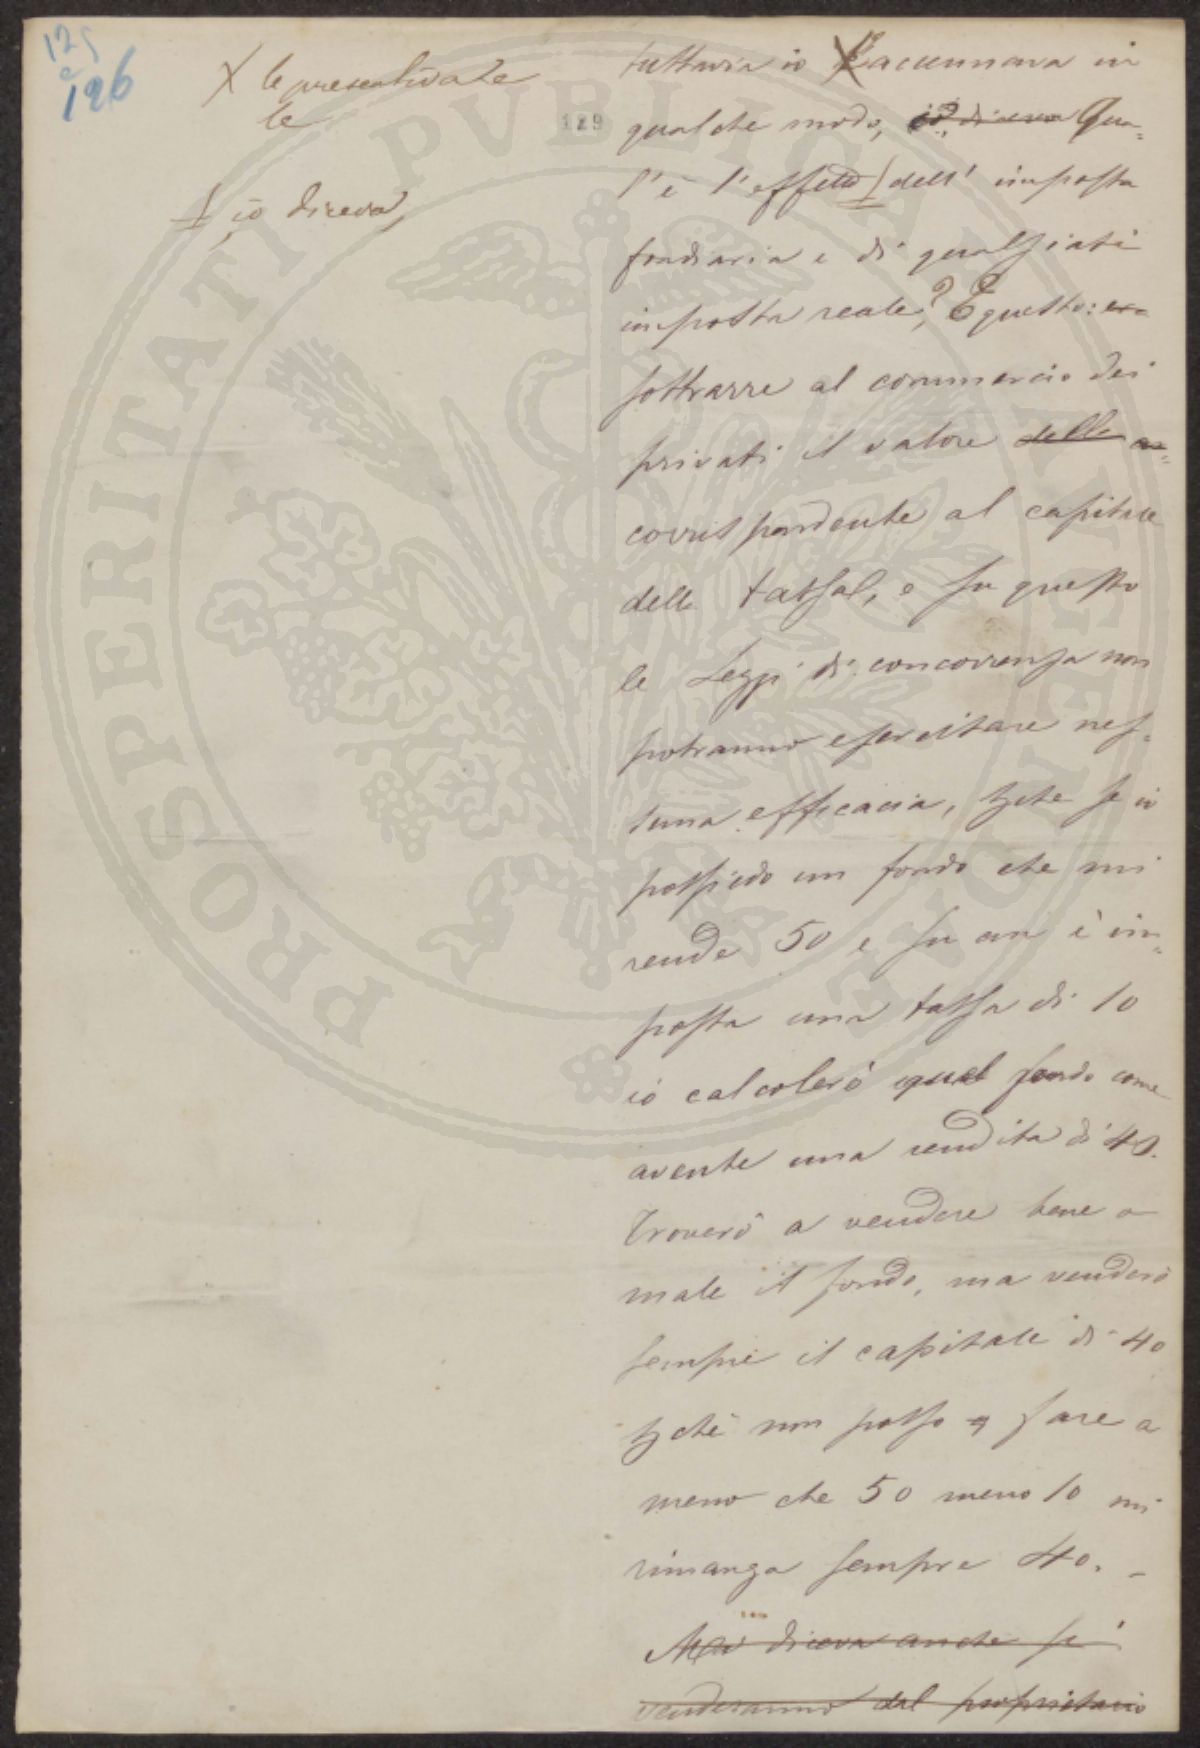 125
e
126
X le presentivate
le
129
⊥, io diceva,
tuttavia io X L'accennava in
qualche modo, io diceva Qua-
l'è l'effetto ⊥ dell' imposta
fondiaria e di qualsiasi
imposta reale? È questo: era
sottrarre al commercio dei
privati il valore della
corrispondente al capitale
della tassa, e su questo
le Leggi di concorrenza non
potranno esercitare nes-
suna efficacia, se io
possiedo un fondo che mi
rende 50 e su cui è im-
posta una tassa di 10
io calcolerò quel fondo come
avente una rendita di 40.
Troverò a vendere bene o
male il fondo, ma venderò
sempre il capitale di 40
non posso fare a
meno che 50 meno 10 mi
rimanga sempre 40. -
Ma diceva anche se
venderanno dal proprietario
PROSPERITATI PUBLICAE